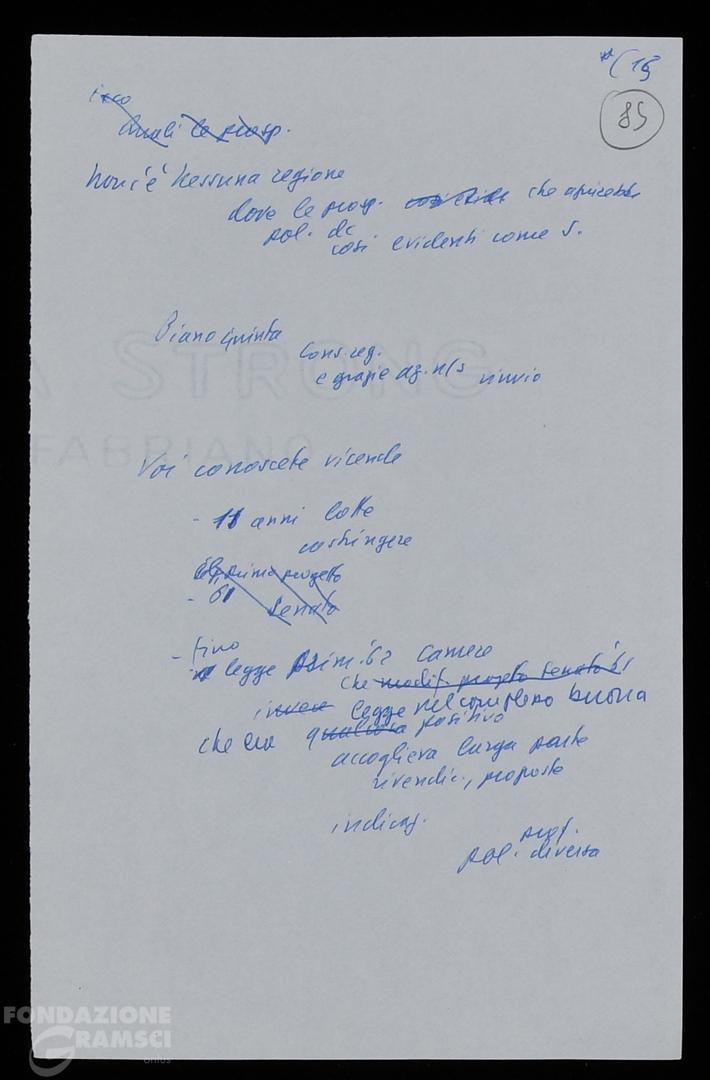 *(15
85
ecco
quali le prosp.
Non c'è nessuna regione
dove le prosp. che
pol. dc
così evidenti come S.
Piano quinta
Cons. reg.
e grazie az. n/s rinvio
Voi conoscete vicende
- 11 anni lotte
costringere
primo progetto
- 61 Senato
- fino
legge prim. '62 Camere
che modif. progetto Senato '61
invece legge nel complesso buona
che era positivo
accoglieva larga parte
rivendic., proposte
indicaz.
pol. diversa
A STRONG
FABRIANO
FONDAZIONE
GRAMSCI
onlus